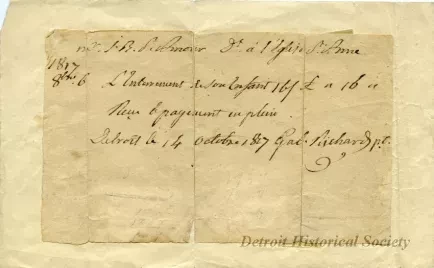 mr. J. B. St. Amour Dt. à l'Eglise St. Anne
1817
8bre 6 L'Enterrement de son Enfant 16s £ " 16 "
Recu le payement en plein
Detroit le 14 octobre 1817 Gab. Richard pt.
Detroit Historical Society